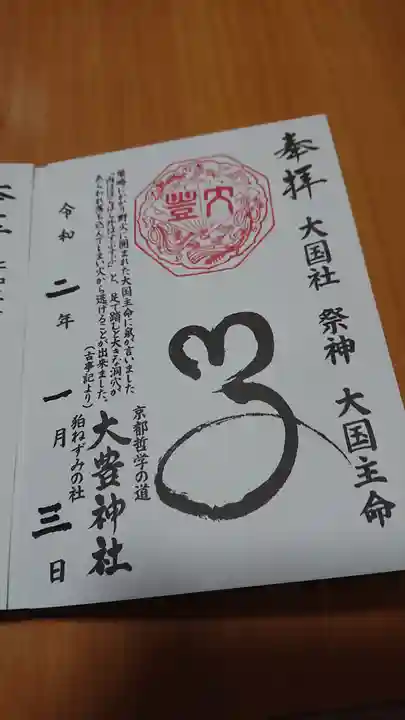 奉拝
大国社　祭神　大国主命
大豊
京都哲学の道
大豊神社
狛ねずみの社
策略にかかり野火に囲まれた大国主命に鼠が言いました
と、足で踏むと大きな洞穴が
あらわれ落ち込んでしまい火から逃げることが出来ました。
（古事記より）
令和二年一月三日